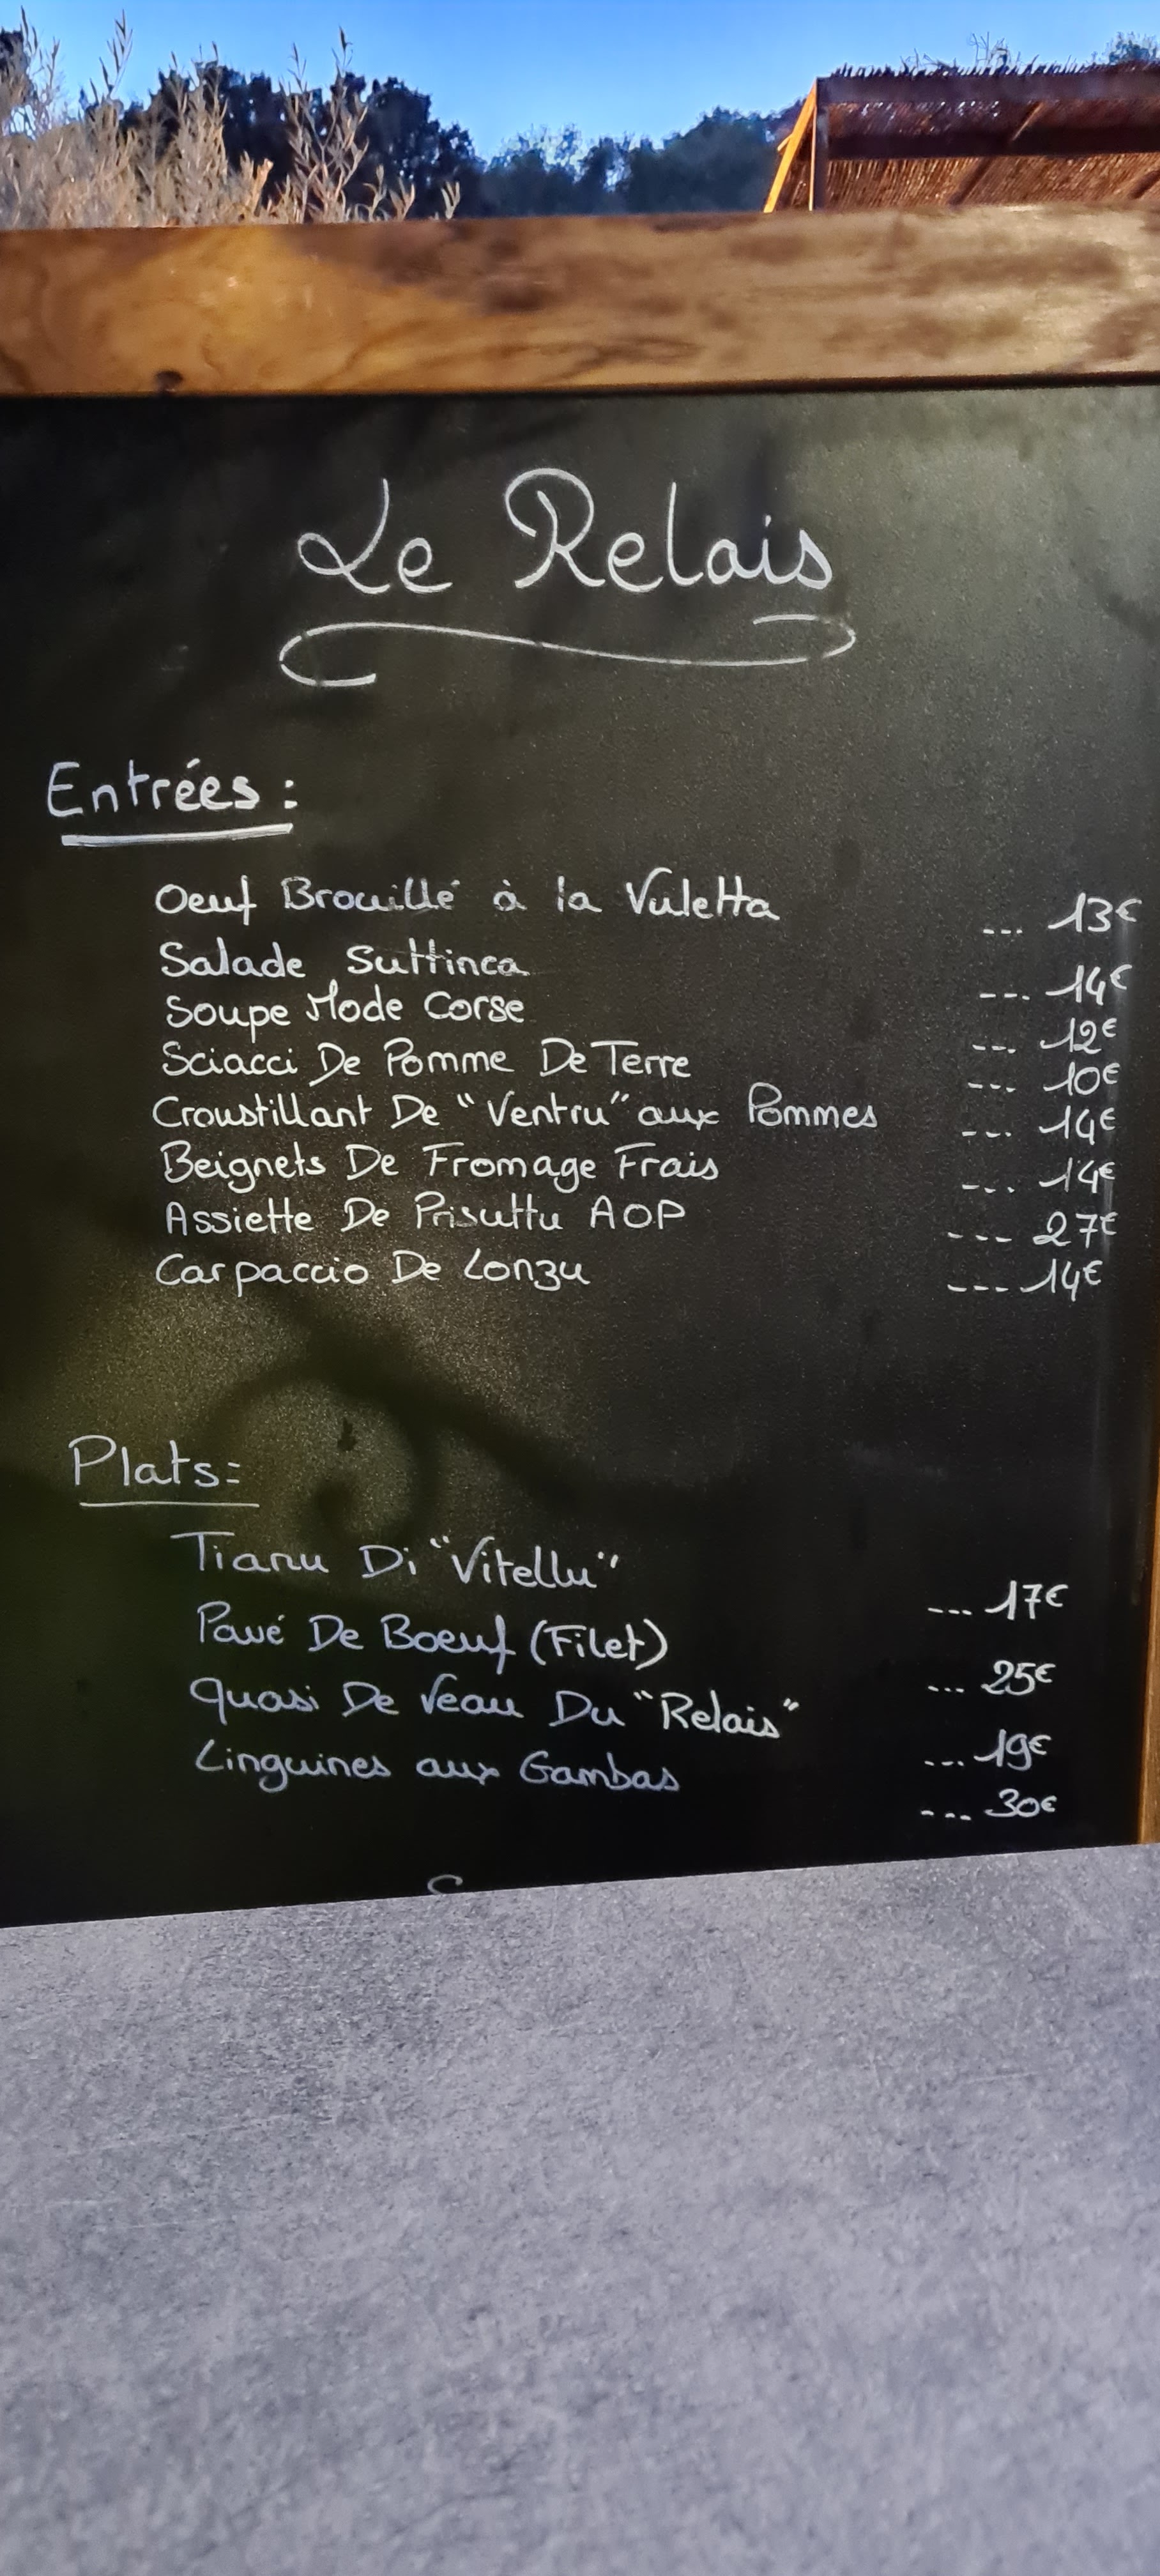 Le Relais
Entrées :
Oeuf Brouillé à la Vuletta --- 13€
Salade Suttinca --- 14€
Soupe Mode Corse --- 12€
Sciacci De Pomme De Terre --- 10€
Croustillant De "Ventru" aux Pommes --- 14€
Beignets De Fromage Frais --- 14€
Assiette De Prisuttu AOP --- 27€
Carpaccio De Lonzu --- 14€
Plats:
Tianu Di "Vitellu" --- 17€
Pavé De Boeuf (Filet) --- 25€
Quasi De Veau Du "Relais" --- 19€
Linguines aux Gambas --- 30€